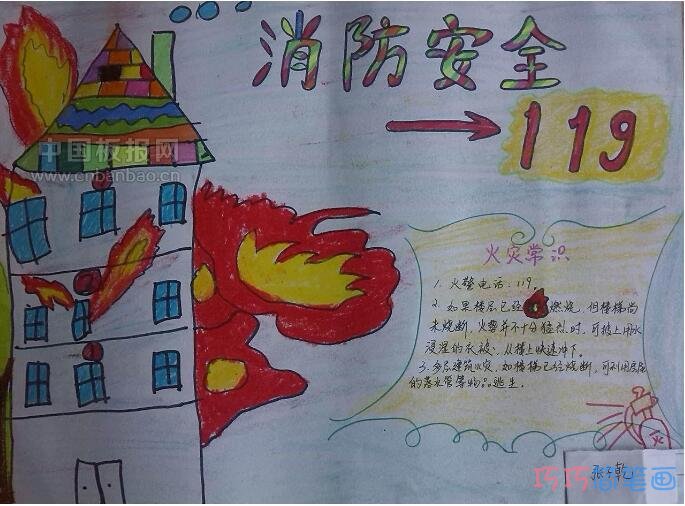 消防安全
119
中国板报网
www.cnbanbao.cn
火灾常识
1. 火警电话:119.
2. 如果楼层已经燃烧，但楼梯尚
未烧断，火势并不十分猛烈时，可披上用水
浸湿的衣被，从楼上快速冲下。
3. 多层建筑火灾，如楼梯已经烧断，可利用房屋
的落水管等物品逃生。
火
张子乾
巧巧简笔画